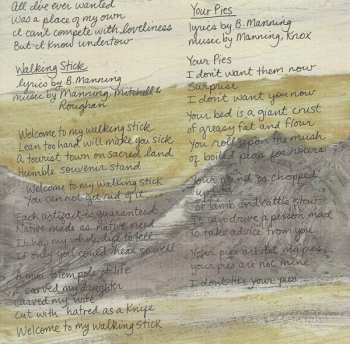 All I've ever wanted
Was a place of my own
I can't compete with loveliness
But I know undertow
Walking Stick
lyrics by B. Manning
music by Manning, Mitchell &
Roughan
Welcome to my walking stick
Lean too hard will make you sick
A tourist town on sacred land
Humble souvenir stand
Welcome to my walking stick
You can not get rid of it
Each artifact is guaranteed
Native made as native need
It has my whole life to tell
if only you could hear so well
A totem pole of life
I carved my daughter
carved my wife
cut with hatred as a knife
Welcome to my walking stick
Your Pies
lyrics by B. Manning
music by Manning, Knox
Your Pies
I don't want them now
Surprise
I don't want you now
Your bed is a giant crust
of greasy fat and flour
You roll upon the mush
of boiled peas for hours
Your mind is chopped
up
of lamb and cattle stew
To drive a person mad
To take advice from you
Your pies are not my pies
your pies are not mine
I don't like your pies